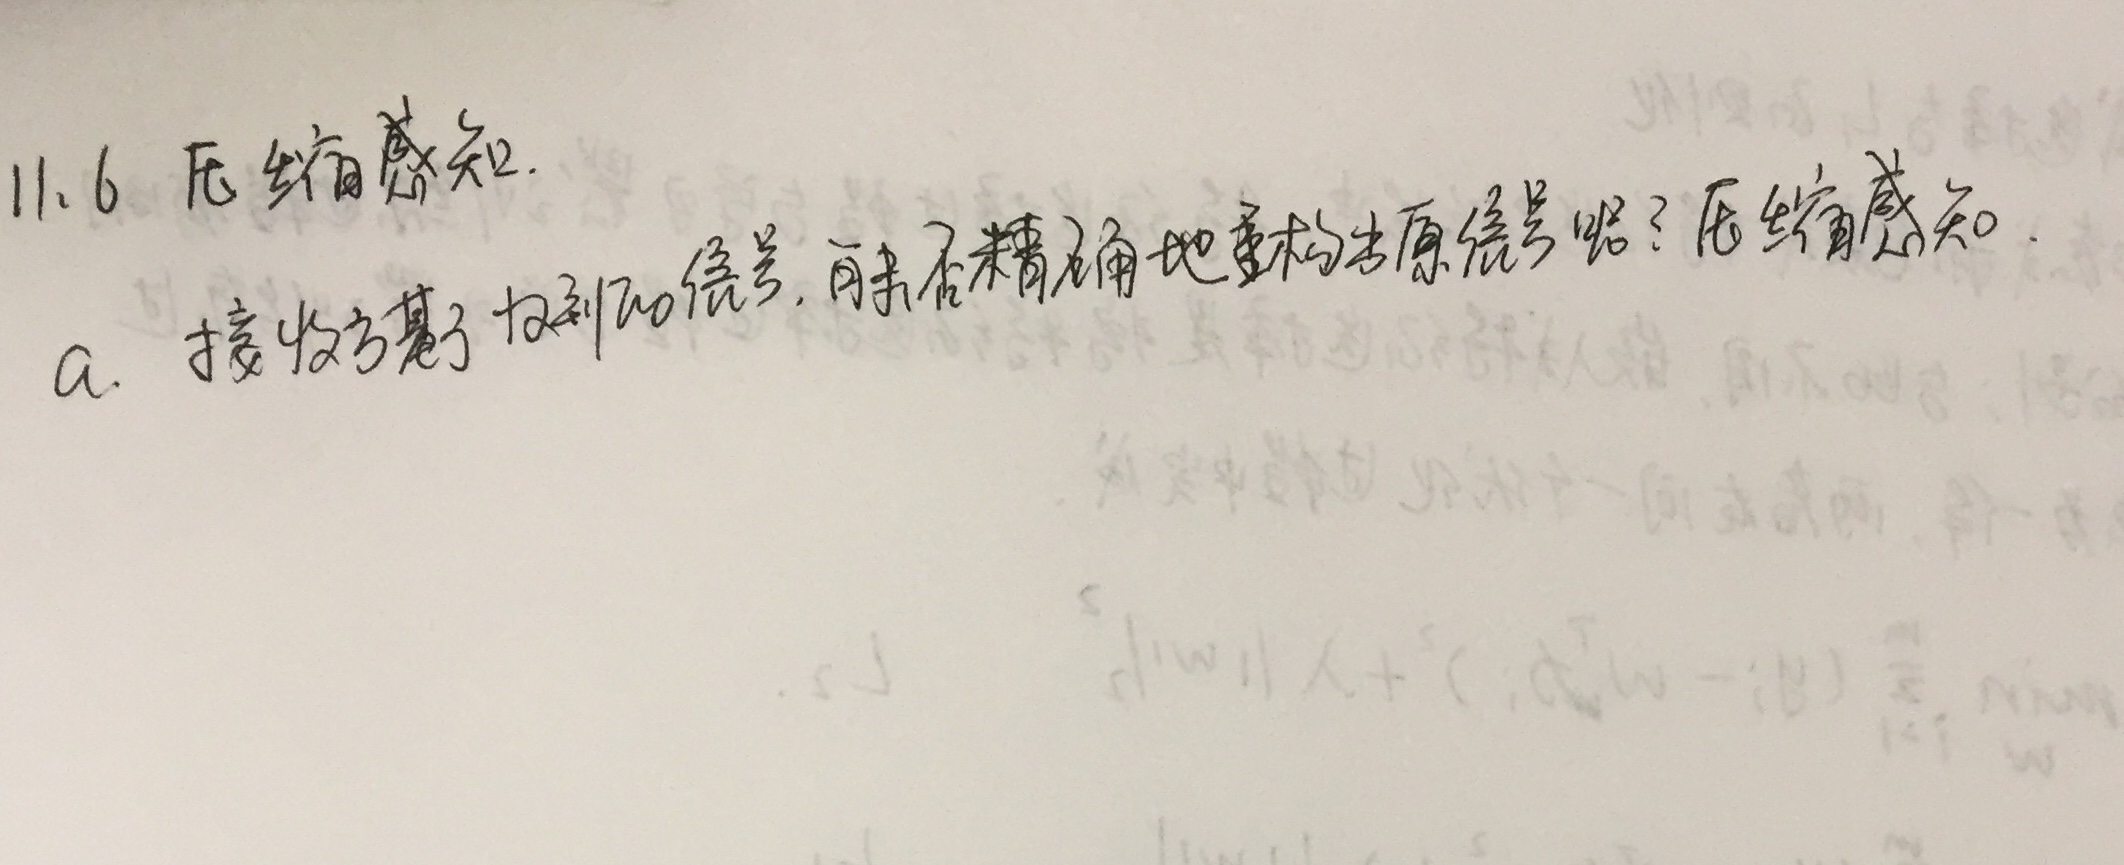 11.6 压缩感知.
a. 接收方基于收到的信号,能否精确地重构出原信号呢?压缩感知.